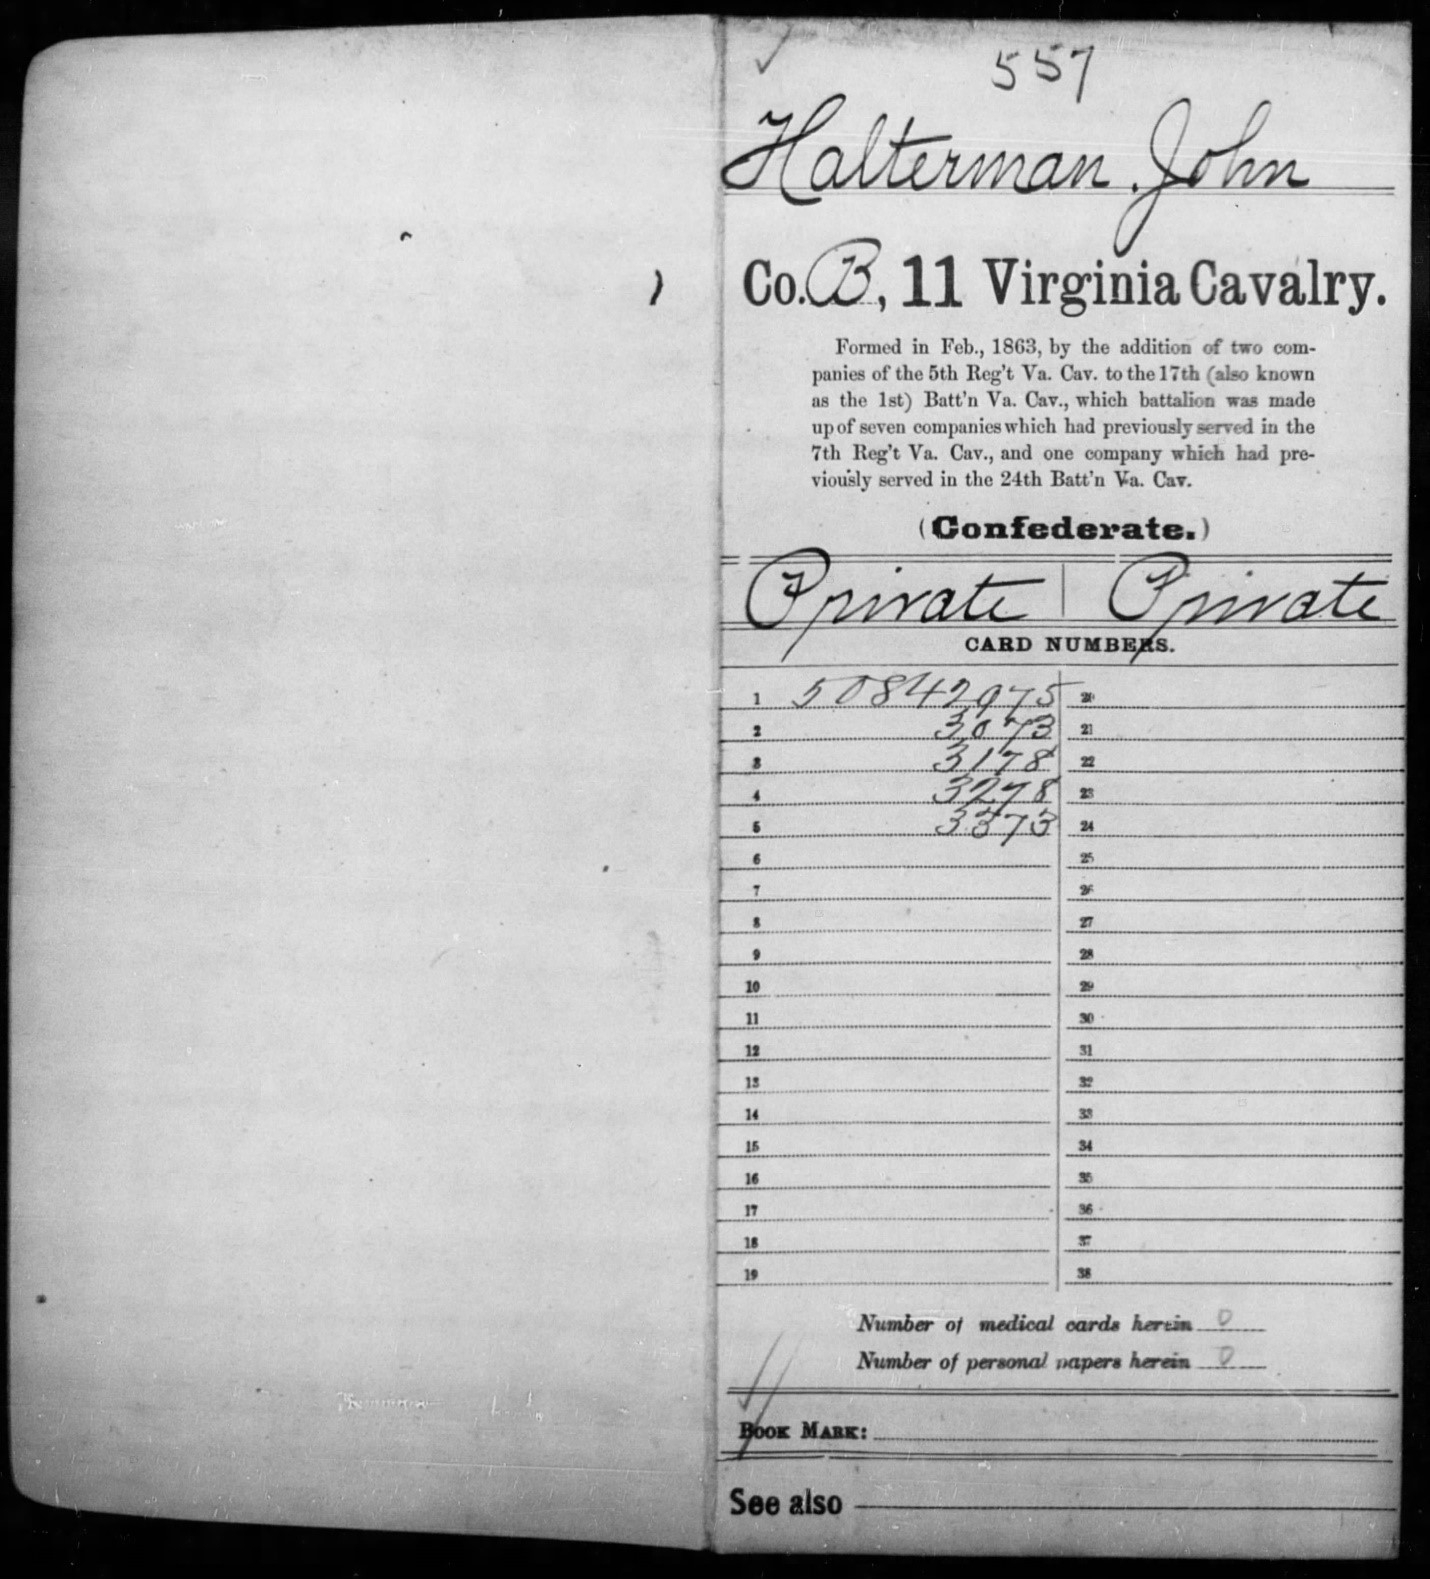 557
Halterman, John
Co. B, 11 Virginia Cavalry.
Formed in Feb., 1863, by the addition of two com-
panies of the 5th Reg't Va. Cav. to the 17th (also known
as the 1st) Batt'n Va. Cav., which battalion was made
up of seven companies which had previously served in the
7th Reg't Va. Cav., and one company which had pre-
viously served in the 24th Batt'n Va. Cav.
(Confederate.)
Private | Private
CARD NUMBERS.
1 50842975 20
2 3073 21
3 3178 22
4 3278 23
5 3373 24
6 25
7 26
8 27
9 28
10 29
11 30
12 31
13 32
14 33
15 34
16 35
17 36
18 37
19 38
Number of medical cards herein 0
Number of personal papers herein 0
BOOK MARK:
See also